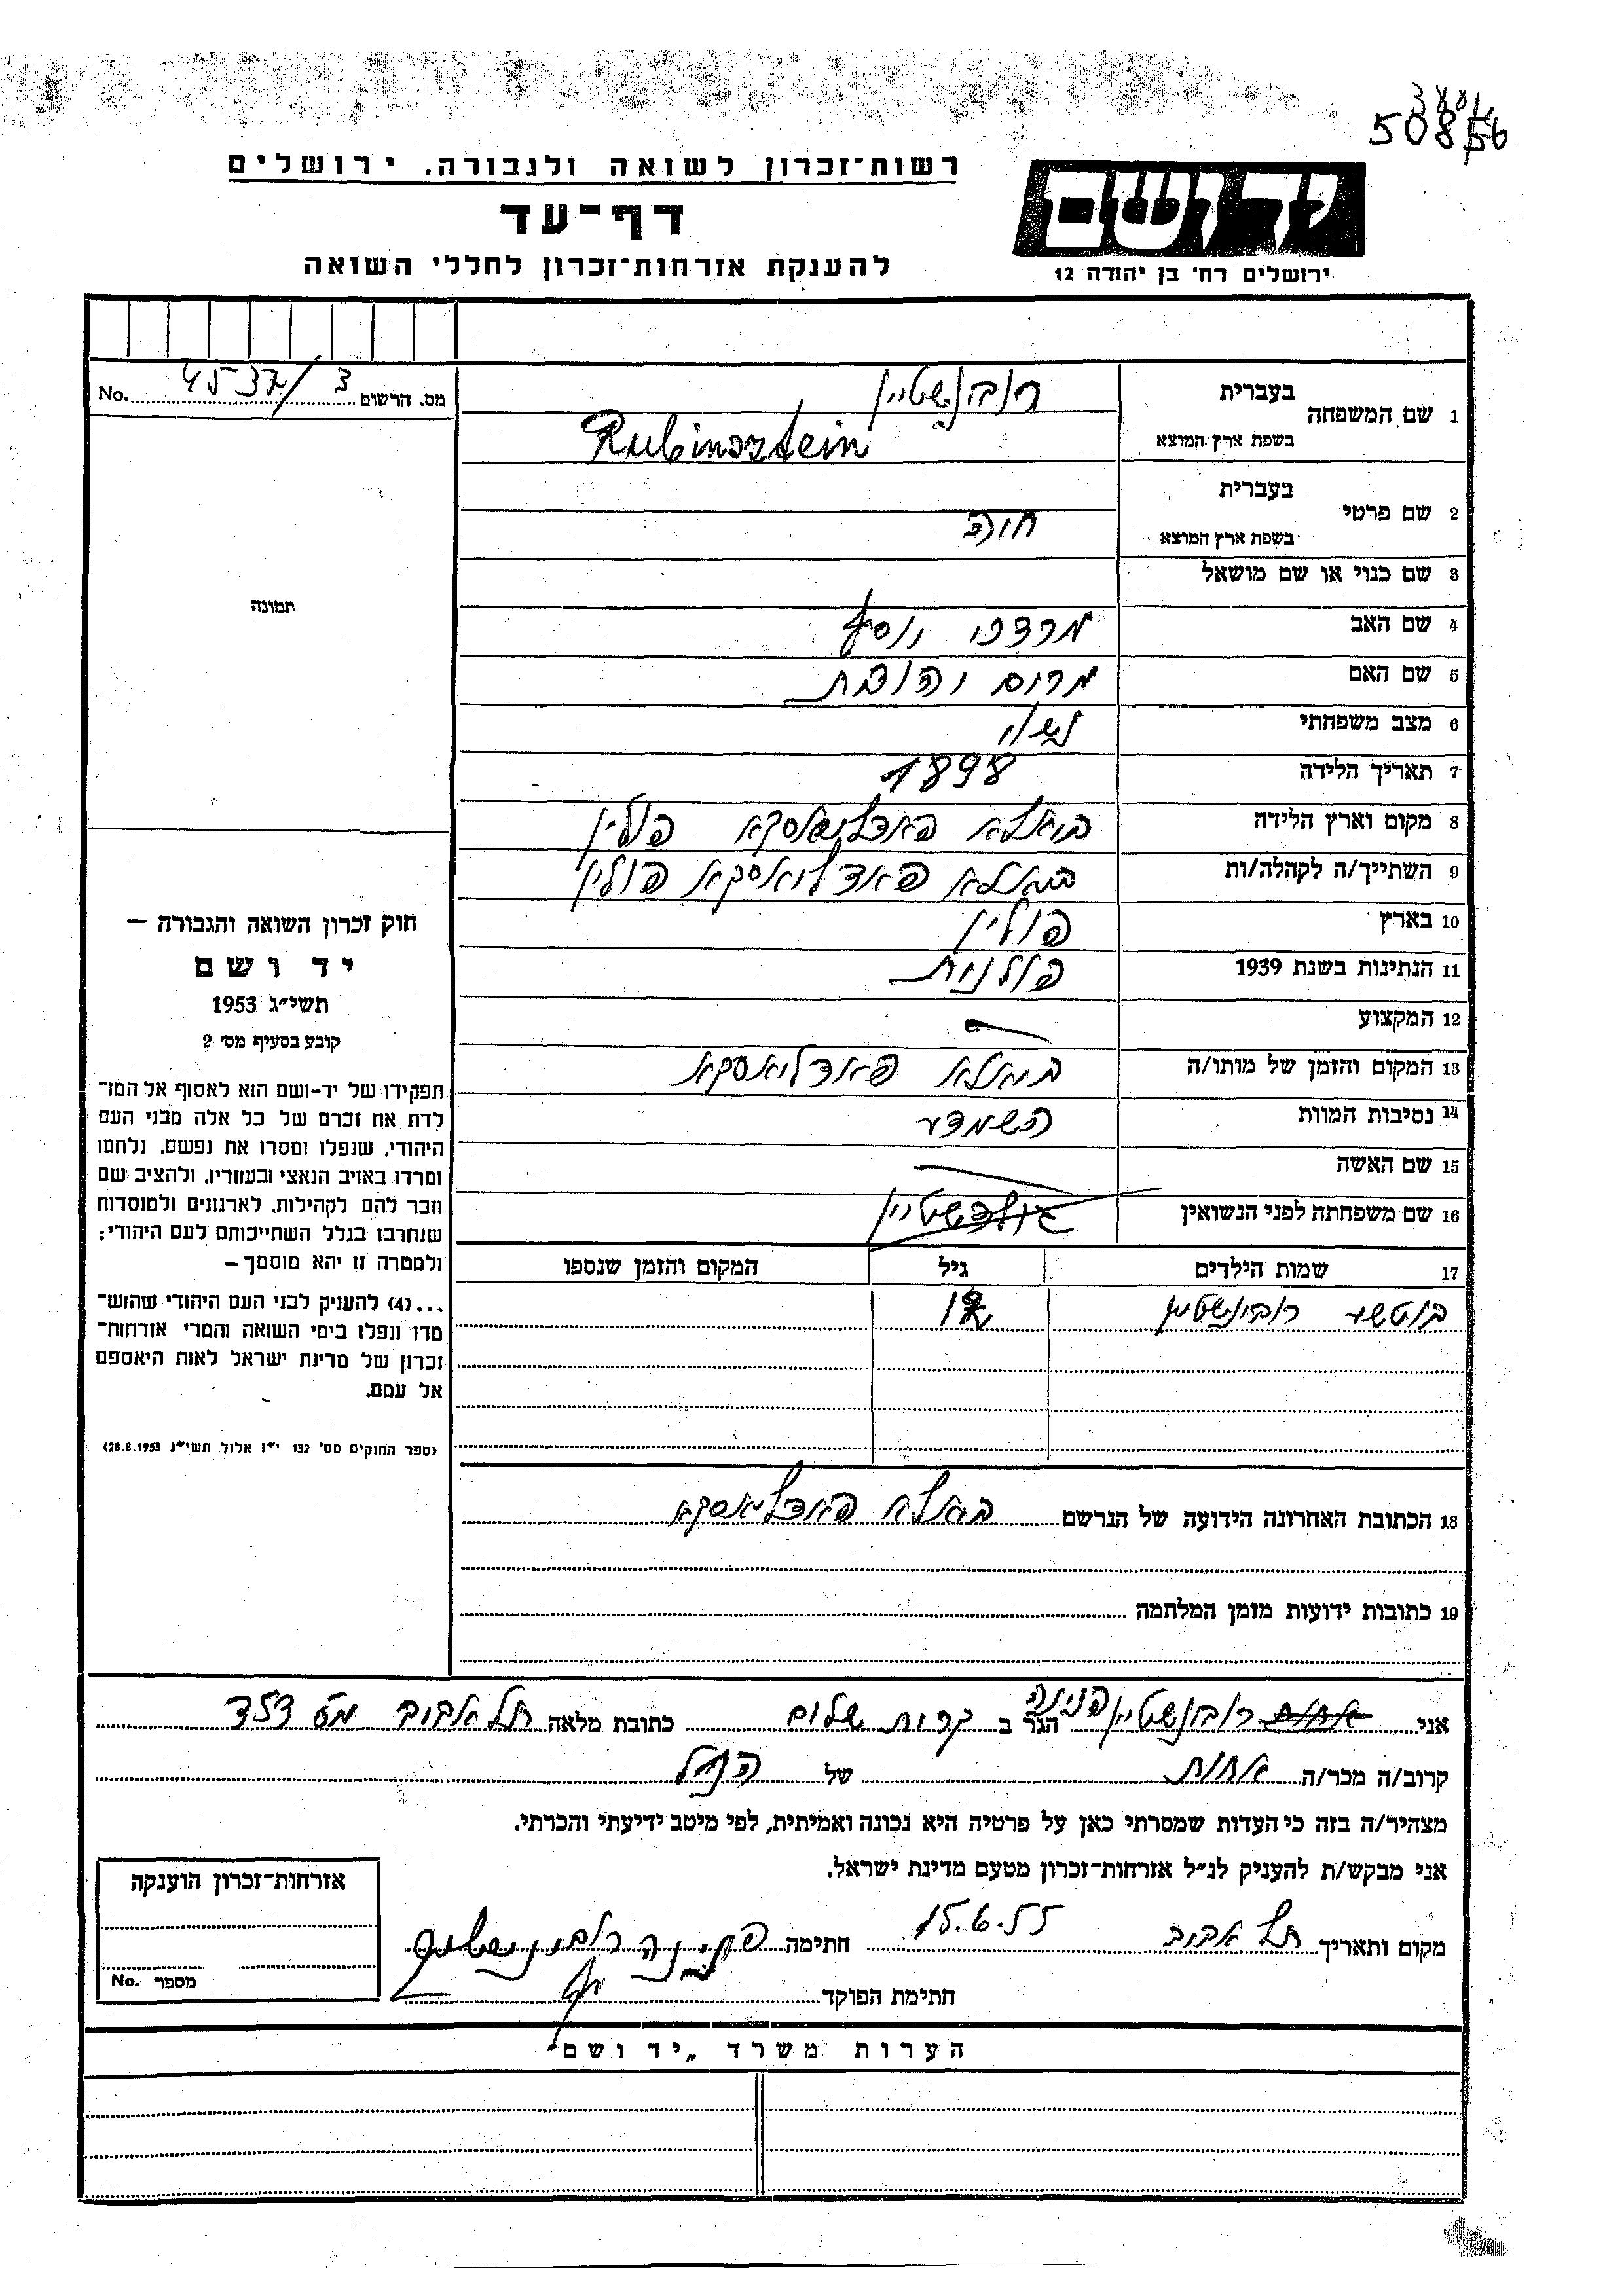 50856
רשות־זכרון לשואה ולגבורה, ירושלים
דף־עד
להענקת אזרחות־זכרון לחללי השואה
יד ושם
ירושלים רח' בן יהודה 12
מס. הרשום 4537/3 No.
1 שם המשפחה בעברית רובינשטיין
בשפת ארץ המוצא Rubinsztein
2 שם פרטי בעברית
בשפת ארץ המוצא חוה
3 שם כנוי או שם מושאל
4 שם האב מרדכי יוסף
5 שם האם מרים יהודית
6 מצב משפחתי נשוי
7 תאריך הלידה 1898
8 מקום וארץ הלידה ביאלא פאדליאסקא פולין
9 השתייך/ה לקהלה/ות ביאלא פאדליאסקא פולין
10 בארץ פולין
11 הנתינות בשנת 1939 פולנית
12 המקצוע
13 המקום והזמן של מותו/ה ביאלא פאדליאסקא
14 נסיבות המוות השמדה
15 שם האשה
16 שם משפחתה לפני הנשואין גולדשטיין
17 שמות הילדים גיל המקום והזמן שנספו
רובינשטיין
18 הכתובת האחרונה הידועה של הנרשם ביאלא פאדליאסקא
19 כתובות ידועות מזמן המלחמה
תמונה
חוק זכרון השואה והגבורה –
יד ושם
תשי״ג 1953
קובע בסעיף מס' 2
תפקידו של יד-ושם הוא לאסוף אל המו־
לדת את זכרם של כל אלה מבני העם
היהודי, שנפלו ומסרו את נפשם, נלחמו
ומרדו באויב הנאצי ובעוזריו, ולהציב שם
וזכר להם לקהילות, לארגונים ולמוסדות
שנחרבו בגלל השתייכותם לעם היהודי;
ולמטרה זו יהא מוסמך –
...(4) להעניק לבני העם היהודי שהוש־
מדו ונפלו בימי השואה והמרי אזרחות־
זכרון של מדינת ישראל לאות היאספם
אל עמם.
(ספר החוקים מס' 132 י״ז אלול תשי״ג 28.8.1953)
אני אחות רובינשטיין פנינה הגר ב קרית שלום כתובת מלאה תל אביב מס 353
קרוב/ה מכר/ה אחות של הנ״ל
מצהיר/ה בזה כי העדות שמסרתי כאן על פרטיה היא נכונה ואמיתית, לפי מיטב ידיעתי והכרתי.
אני מבקש/ת להעניק לנ״ל אזרחות־זכרון מטעם מדינת ישראל.
מקום ותאריך תל אביב 15.6.55 חתימה פנינה רובינשטיין
חתימת הפוקד
אזרחות־זכרון הוענקה
מספר No.
הערות משרד „יד ושם"